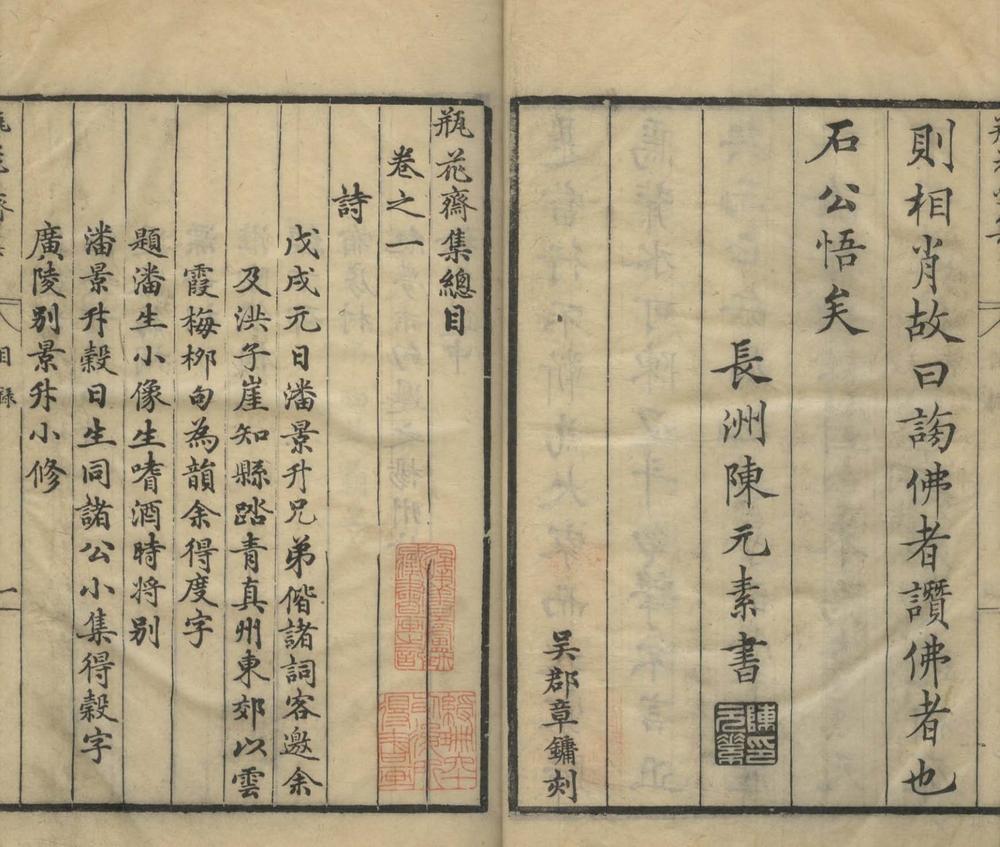 則相肖故曰謗佛者讚佛者也
石公悟矣
長洲陳元素書
陳印元素
吳郡章鏞刻
瓶花齋集總目
卷之一
詩
戊戌元日潘景升兄弟偕諸詞客邀余
及洪子崖知縣踏青真州東郊以雲
霞梅柳句為韻余得度字
題潘生小像生嗜酒時將别
潘景升穀日生同諸公小集得穀字
廣陵别景升小修
目錄
一